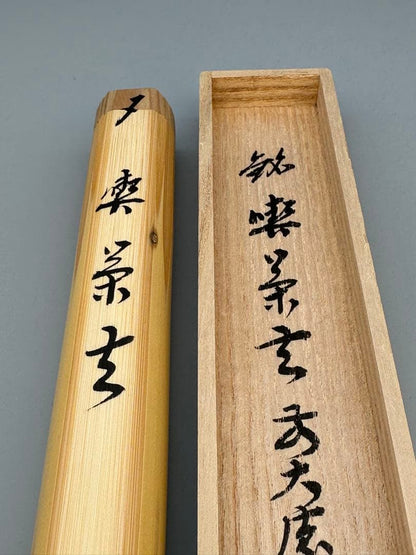 銘喫茶去前大徳
〆喫茶去